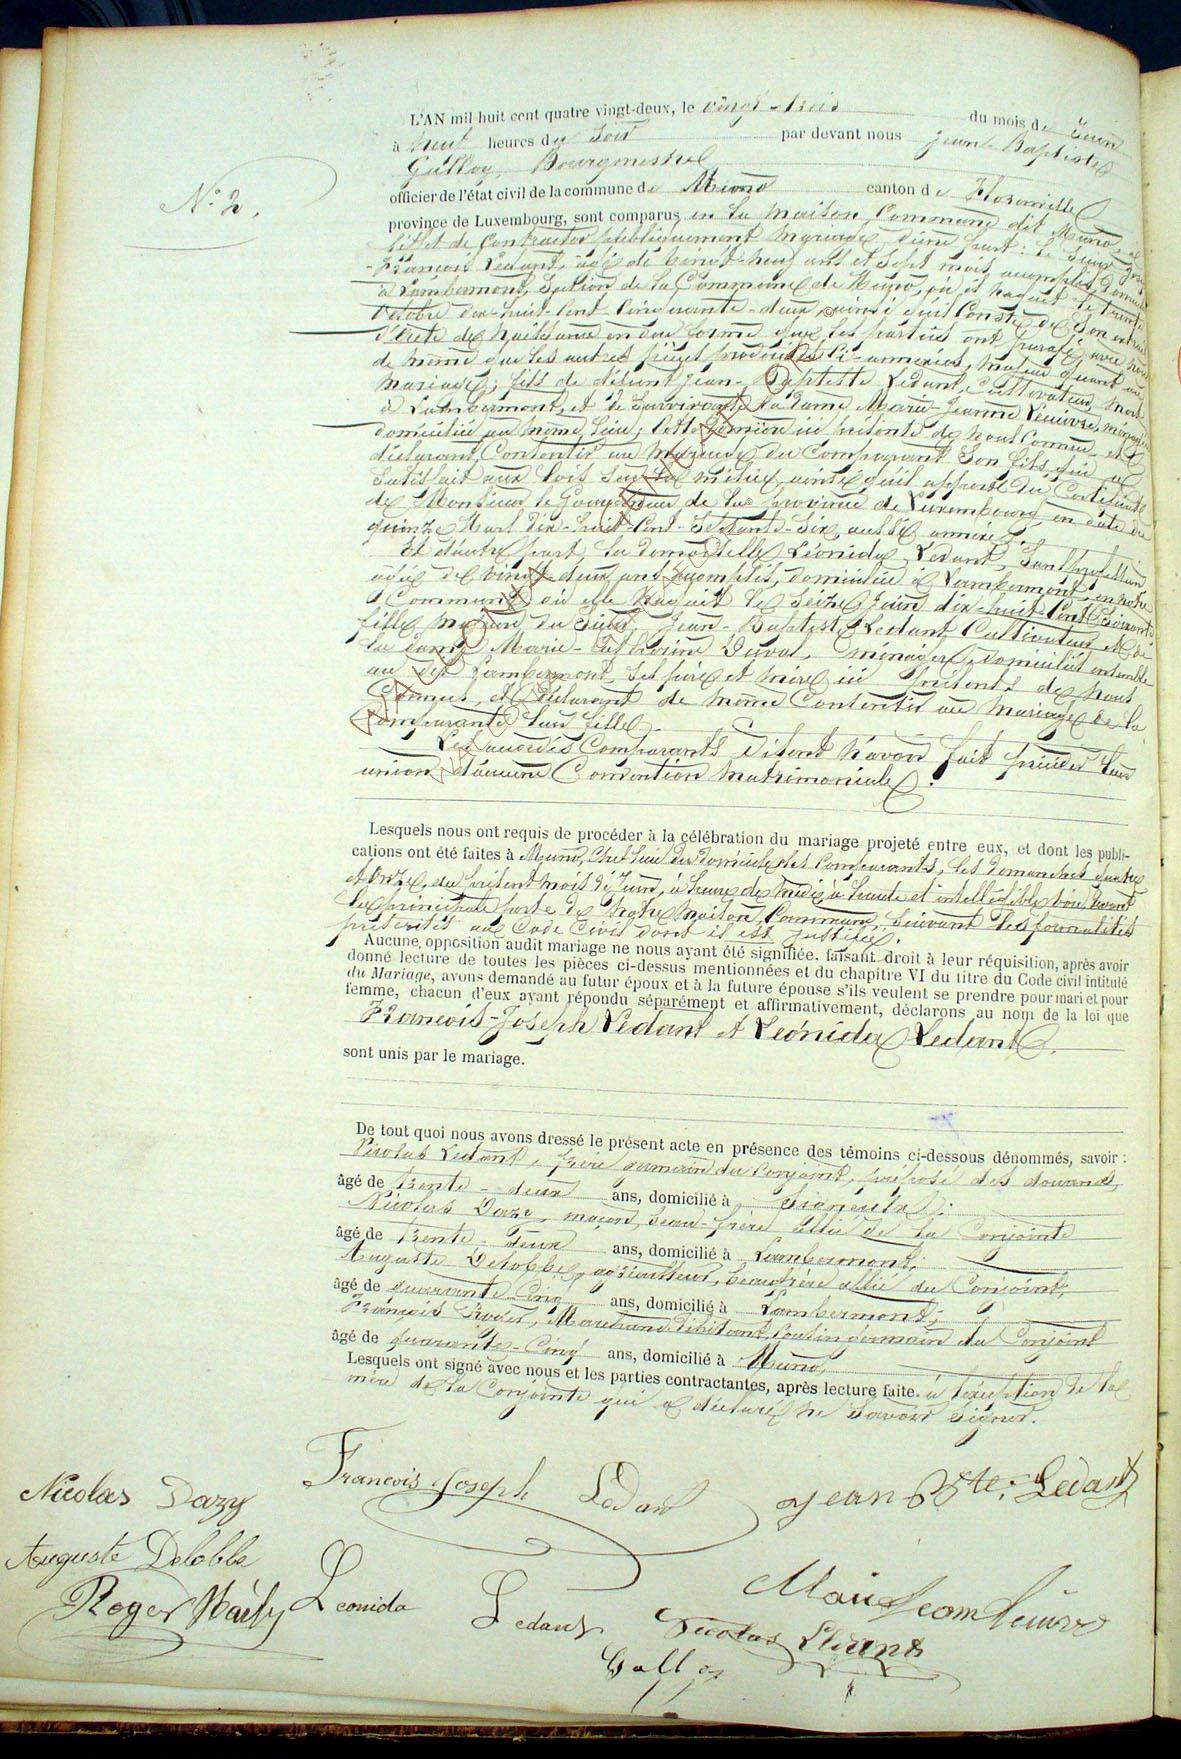 N° 2.
L'AN mil huit cent quatre vingt-deux, le vingt-trois du mois de Juin
à neuf heures du soir par devant nous Jean-Baptiste
Galloy, Bourgmestre
officier de l'état civil de la commune de Muno canton de Florenville
province de Luxembourg, sont comparus en la maison Commune dit Muno
l'effet de contracter publiquement mariage, d'une part: le Sieur
François Ledant, âgé de vingt-neuf ans et sept mois accomplis,
à Lambermont, Section de la Commune de Muno, où il naquit le trente
Octobre dix-huit-Cent-Cinquante-deux, ainsi qu'il conste de Son extrait
d'acte de naissance en due forme que les parties ont paraphé avec nous
de même que les autres pièces produites ci-annexées, majeur quant au
mariage; fils de défunt Jean-Baptiste Ledant, Cultivateur, mort
à Lambermont, et de Survivante la dame Marie-Jeanne Lenivre, ménagère
domiciliée au même lieu; cette dernière ici présente de nous Connue et
déclarant Consentir au Mariage du Comparant Son fils qui a
Satisfait aux lois Sur la milice, ainsi qu'il appert du Certificat
de Monsieur le Gouverneur de la province de Luxembourg en date du
quinze Mars dix-huit-Cent-Septante-Six, aussi annexé.
Et d'autre part, la demoiselle Léonida Ledant, Sans profession
âgée de vingt-deux ans accomplis, domiciliée à Lambermont en notre
Commune où elle naquit le Seize Juin dix-huit-Cent-Soixante
fille majeure du Sieur Jean-Baptiste Ledant Cultivateur et de
la dame Marie-Catherine Duval, ménagère, domiciliés ensemble
au dit Lambermont, Ses père et mère ici présents de nous
Connus, et déclarant de même Consentir au Mariage de la
Comparante leur fille.
Les accordés Comparants disent n'avoir fait précéder leur
union d'aucune Convention Matrimoniale.
Lesquels nous ont requis de procéder à la célébration du mariage projeté entre eux, et dont les publi-
cations ont été faites à Muno, Chef lieu du domicile des Comparants, les dimanches quatre
et onze, du présent mois de Juin, à heure de midi, à haute et intelligible voix, devant
la principale porte de Notre Maison Commune, Suivant les formalités
prescrites au Code Civil dont il est justifié.
Aucune opposition audit mariage ne nous ayant été signifiée. faisant droit à leur réquisition, après avoir
donné lecture de toutes les pièces ci-dessus mentionnées et du chapitre VI du titre du Code civil intitulé
du Mariage, avons demandé au futur époux et à la future épouse s'ils veulent se prendre pour mari et pour
femme, chacun d'eux ayant répondu séparément et affirmativement, déclarons au nom de la loi que
François-Joseph Ledant et Léonida Ledant
sont unis par le mariage.
De tout quoi nous avons dressé le présent acte en présence des témoins ci-dessous dénommés, savoir :
Nicolas Ledant, frère germain du Conjoint, préposé des douanes,
âgé de trente-deux ans, domicilié à
Nicolas Dazy, maçon, beau-frère allié de la Conjointe
âgé de trente-deux ans, domicilié à Lambermont;
Auguste Delobbe, agriculteur, beau-frère allié du Conjoint,
âgé de quarante-Cinq ans, domicilié à Lambermont;
François Roger, Marchand débitant, Cousin germain du Conjoint
âgé de quarante-Cinq ans, domicilié à Muno,
Lesquels ont signé avec nous et les parties contractantes, après lecture faite. à l'exception de la
mère de la Conjointe qui a déclaré ne Savoir Signer.
François Joseph Ledant
Jean Bte: Ledant
Nicolas Dazy
Auguste Delobbe
Leonida Ledant
Marie Jean Lenivre
Roger
Nicolas Ledant
Galloy